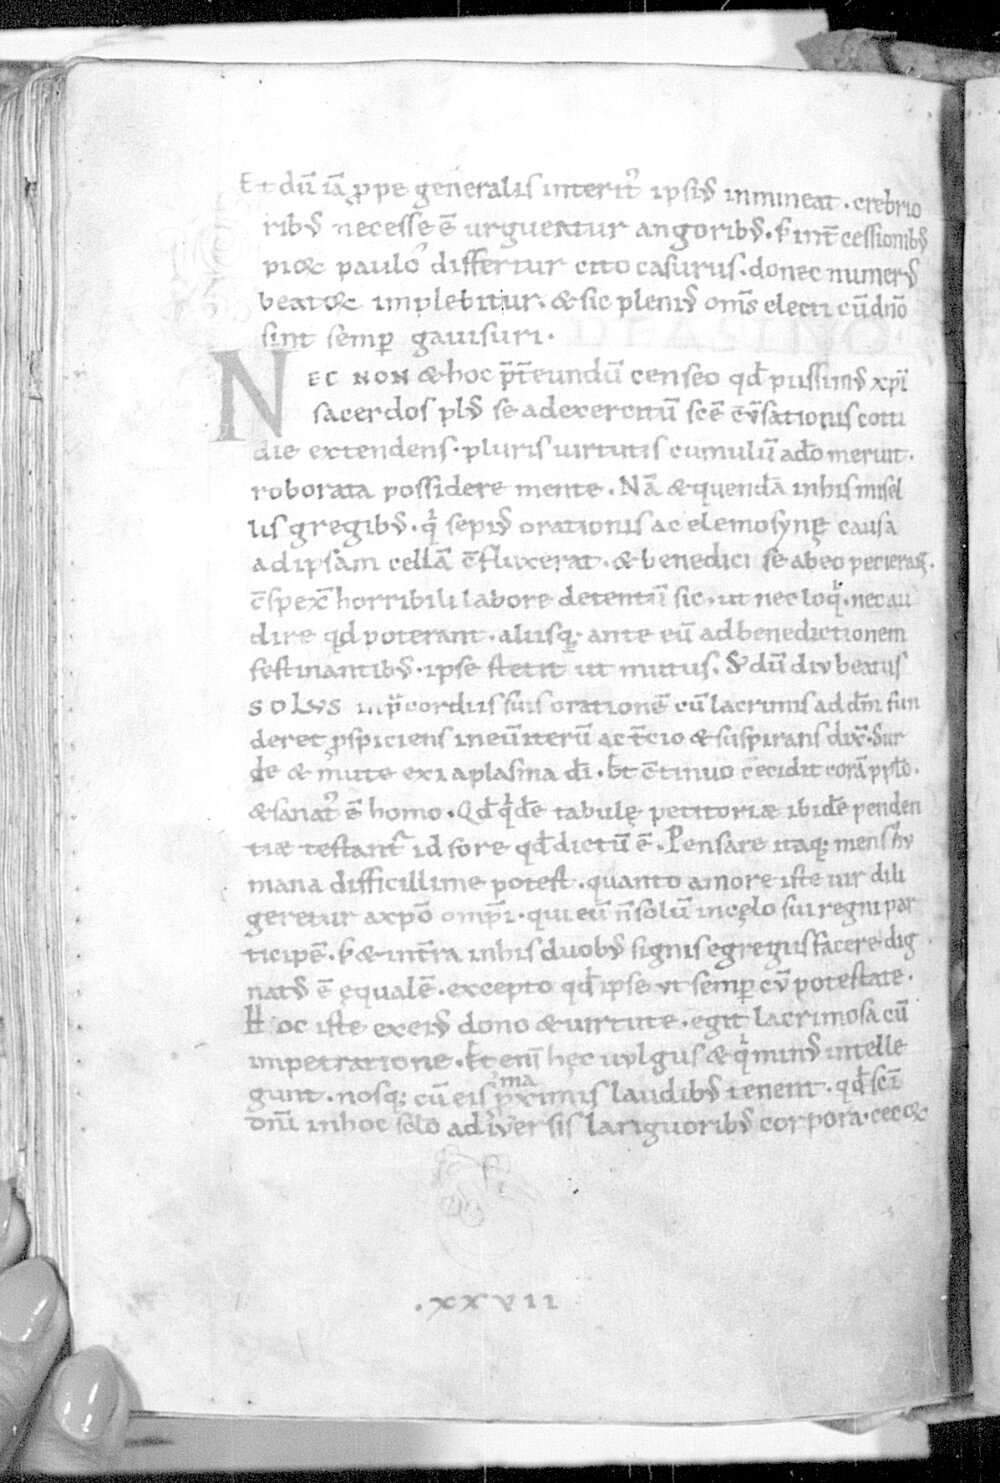 Et dū iā ꝓpe generalis interit᷒ ipsiꝰ inmineat. crebrio
ribꝰ necesse ē urgueatur angoribꝰ. s; int̄cessionibꝰ
pioꝝ paulo differtur cito casurus. donec numerꝰ
beatoꝝ implebitur. & sic pleniꝰ om̄s electi cū dn̄o
sint semꝑ gauisuri.
NEC NON & hoc p̄t̄eundū censeo qd̄ piissimꝰ xp̄i
sacerdos plꝰ se ad exercitiū scē c̄v̄sationis cotti
die extendens. pluris uirtutis cumulū a dō meruit.
roborata possidere mente. Nā & quendā in his misel
lis gregibꝰ. qͥ sepiꝰ orationis ac elemosynę causa
ad ipsam cellā c̄fluxerat. & benedici se ab eo pecierat.
c̄spex̄ horribili labore detentū sic. ut nec loqͥ. nec au
dire qd̄ poterant. aliisq; ante eū ad benedictionem
festinantibꝰ. ipse stetit ut mutus. Sꝫ dū diu beatus
SOLUS in p̄cordiis suis orationē cū lacrimis ad dm̄ fun
deret ꝓspiciens in eū iterū ac t̄cio & suspirans dix̄. Sur
de & mute exi a plasma dī. Et c̄tinuo cecidit corā pplō.
& sanat᷒ ē homo. Qd̄ qͥdē tabulę petitoriæ ibidē penden
tiæ testant᷒ id fore qd̄ dictū ē. Pensare itaq; mens hu
mana difficillime potest. quanto amore iste uir dili
geretur a xpō omp̄i. qui eū n̄ solū in cęlo sui regni par
ticipē. s; & in t̄ra in his duobꝰ signis egregiis facere dig
natꝰ ē equalē. excepto qd̄ ipse ut semꝑ cū potestate.
Hoc iste ex eiꝰ dono & uirtute. egit lacrimosa cū
impetratione. Et enī hęc uulgus & qͥ minꝰ intelle
gunt. nosq; cū eis ꝓximis laudibꝰ tenent. qd̄ scī
ma
dn̄i in hoc solo a diuersis languoribꝰ corpora. cecoꝝ
.XXVII